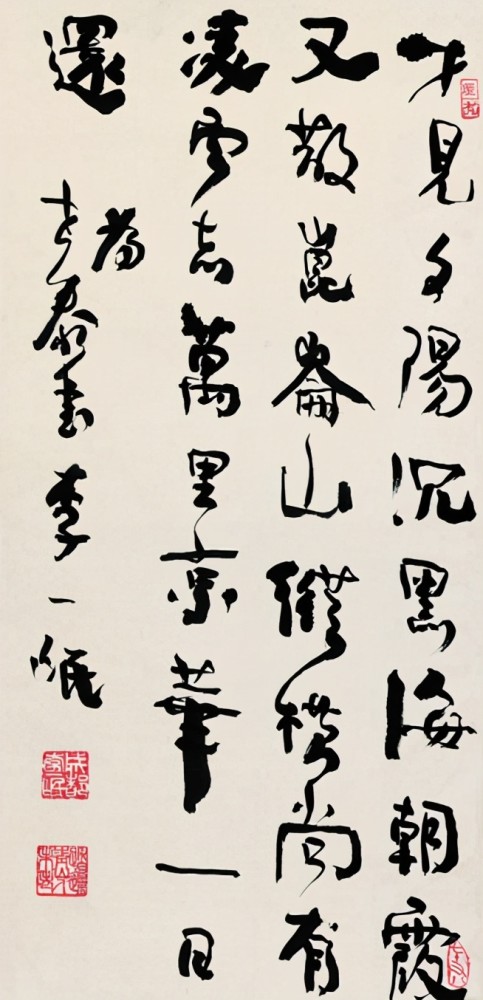 才見夕陽沉黑海朝霞
又散崑崙山縱橫尚有
凌雲志萬里京華一日
還
為
泰書李一氓